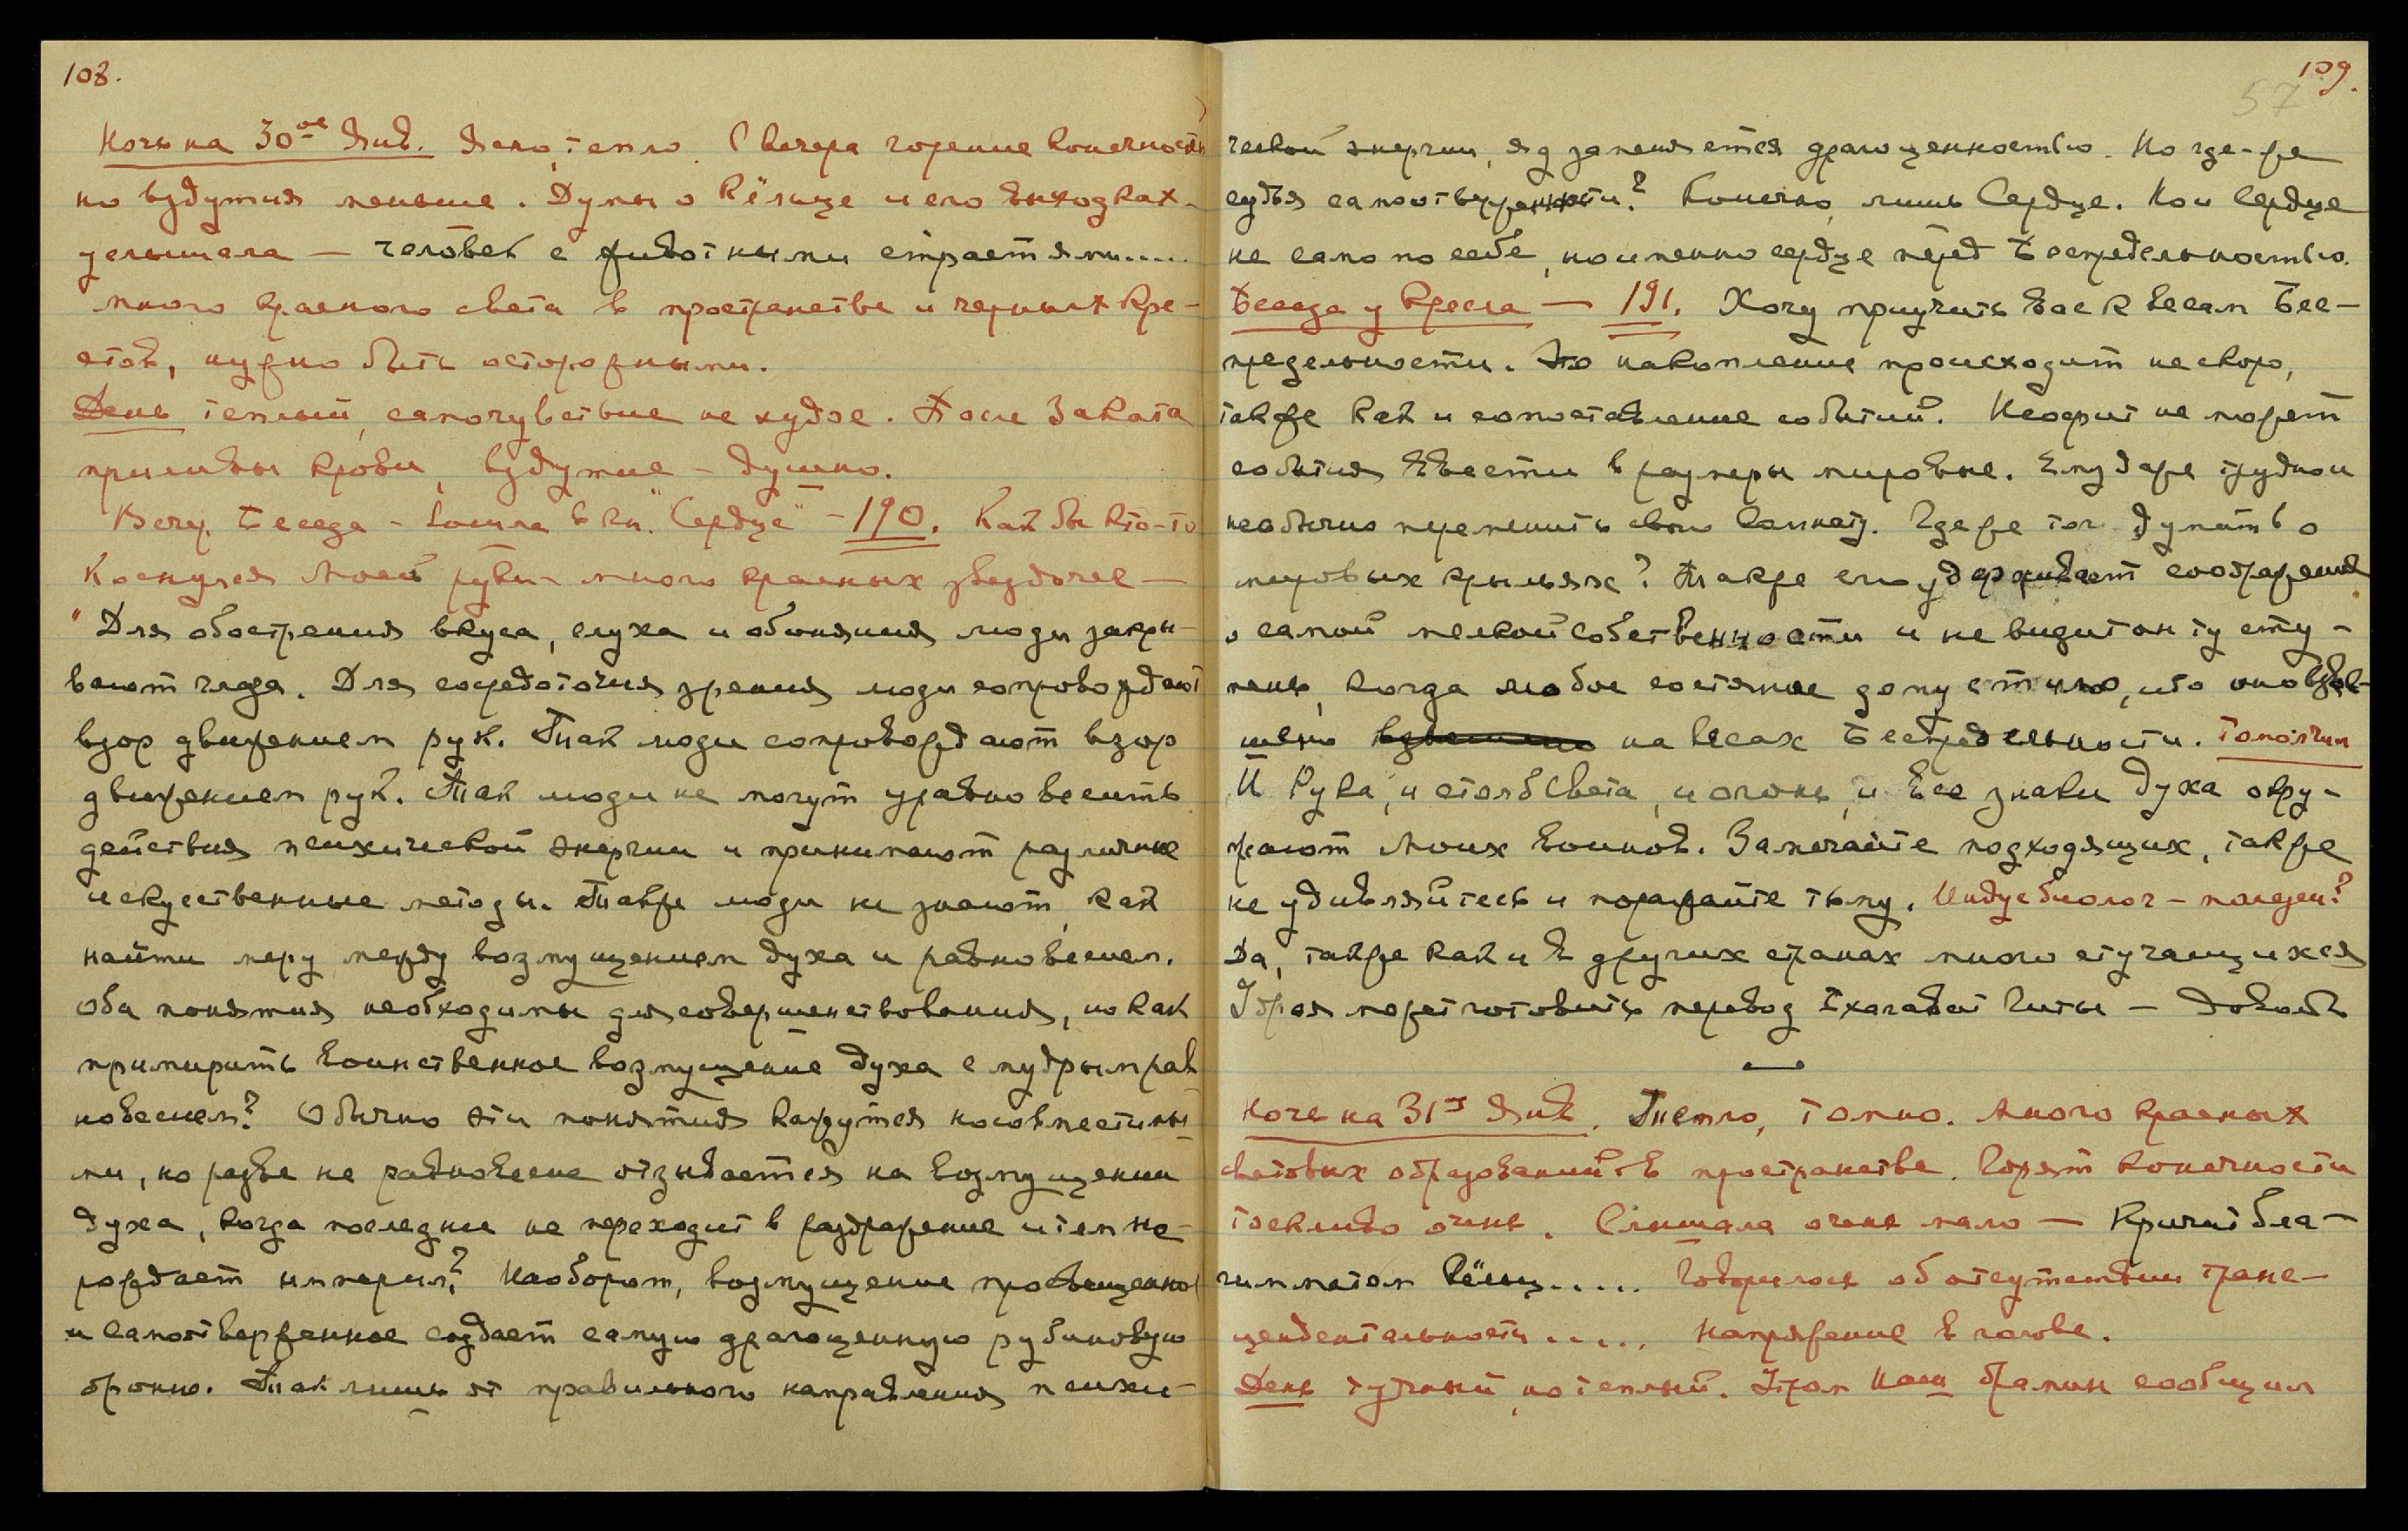 108.
Ночь на 30ое Янв. Ясно, тепло. С вечера горение конечностей
но вздутия меньше. Думы о Кёльце и его выходках.
услышала — человек с животными страстями.....
много красного света в пространстве и черных кре-
стов, нужно быть осторожными.
День теплый, самочувствие не худое. После Заката
приливы крови, вздутие - душно.
Веч. Беседа - вошла в кн. "Сердце" - 190. Как бы кто-то
коснулся моей руки - много красных звездочек —
"Для обострения вкуса, слуха и обоняния люди закры-
вают глаза. Для средоточия зрения люди сопровождают
взор движением рук. Так люди сопровождают взор
движением рук. Так люди не могут уравновесить
действия психической энергии и принимают различные
искусственные методы. Также люди не знают, как
найти меру между возмущением духа и равновесием.
Оба понятия необходимы для совершенствования, но как
примирить воинственное возмущение духа с мудрым рав
новесием? Обычно эти понятия кажутся несовместимы
ми, но разве не равновесие отзывается на возмущении
духа, когда последнее не переходит в раздражение и тем не
рождает империл? Наоборот, возмущение просвещенное
и самоотверженное создает самую драгоценную рубиновую
броню. Так лишь от правильного направления психи-
109.
57
ческой энергии, яд заменяется драгоценностью. Но где-же
судья самоотверженности? Конечно, лишь Сердце. Но и Сердце
не само по себе, но именно сердце перед Беспредельностью.
Беседа у Кресла — 191. Хочу приучить вас к весам Бес-
предельности. Это накопление происходит не скоро,
также как и сопоставление событий. Неофит не может
события ввести в размеры мировые. Ему даже трудно и
необычно переменить свою комнату. Где же тог думать о
мировых крыльях? Также его удерживает соображения
о самой мелкой собственности и не видит он ту сту-
пень, когда любое состояние допустимо, ибо оно взве-
шено взвешено на весах Беспредельности. Помолчим
И Рука, и столб Света, и огонь, и все знаки Духа окру-
жают моих воинов. Замечайте подходящих, также
не удивляйтесь и поражайте тьму. Индус биолог - полезен?
Да, также как и в других странах много стучащихся
Яруя может готовить перевод Бхагавад Гиты — Довольно
—
Ночь на 31ое Янв. Тепло, томно. Много красных
световых образований в пространстве. Горят конечности
тоскливо очень. Слышала очень мало — Кричит бла-
гим матом Кёльц..... Говорилось об отсутствии транс-
цендентальности..... Напряжение в голове.
День тучный, но теплый. Утром Наш брамин сообщил